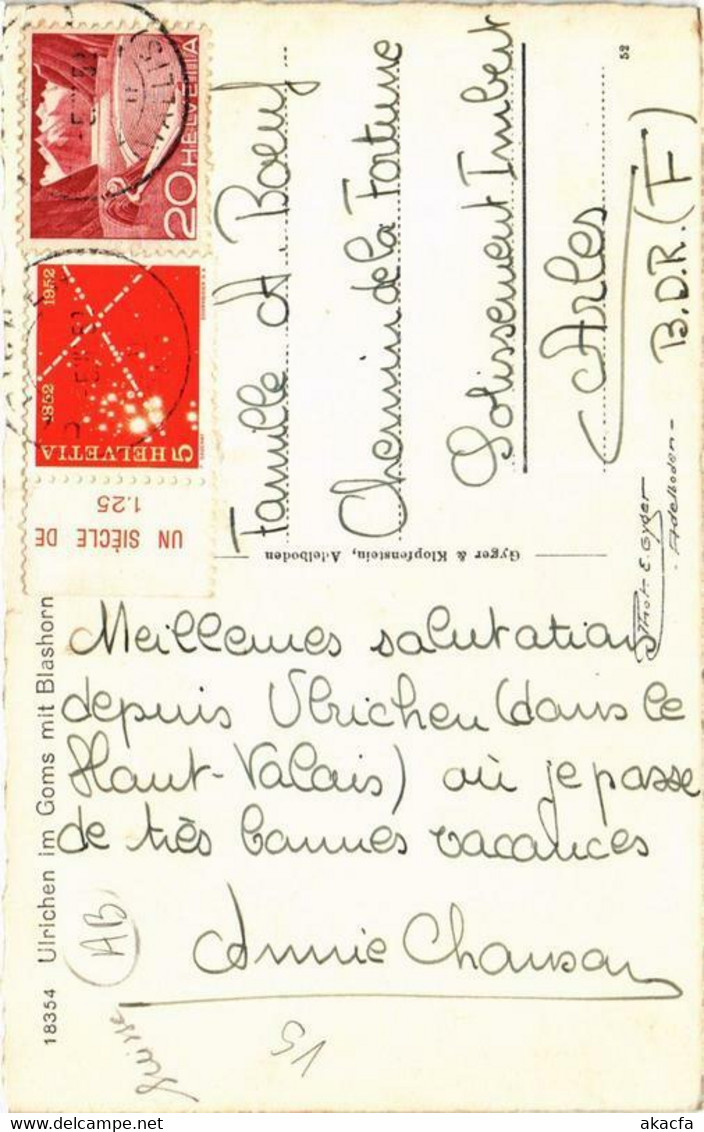 HELVETIA
20
1852 1952
5 HELVETIA
UN SIÈCLE DE
1.25
52
Famille A. Boeuf
Chemin de la Fortune
Lotissement Imbert
Arles
B.D.R. (F)
Gyger & Klopfenstein, Adelboden
Phot. E. Gyger
- Adelboden -
Meilleures salutations
depuis Ulrichen (dans le
Haut-Valais) où je passe
de très bonnes vacances
Annie
18354 Ulrichen im Goms mit Blashorn
AB
Suisse
V5
akacfa